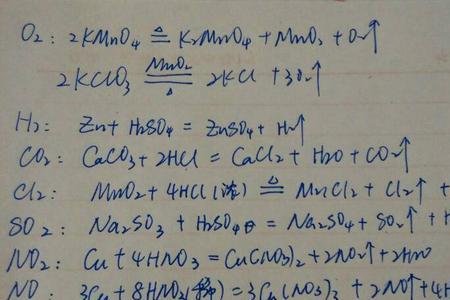 O₂: 2KMnO₄ ≜ K₂MnO₄ + MnO₂ + O₂↑
2KClO₃ MnO₂ ══ △ 2KCl + 3O₂↑
H₂: Zn + H₂SO₄ = ZnSO₄ + H₂↑
CO₂: CaCO₃ + 2HCl = CaCl₂ + H₂O + CO₂↑
Cl₂: MnO₂ + 4HCl(浓) ≜ MnCl₂ + Cl₂↑ +
SO₂: Na₂SO₃ + H₂SO₄ = Na₂SO₄ + SO₂↑ + H
NO₂: Cu + 4HNO₃ = Cu(NO₃)₂ + 2NO₂↑ + 2H₂O
NO: 3Cu + 8HNO₃(稀) = 3Cu(NO₃)₂ + 2NO↑ + 4H